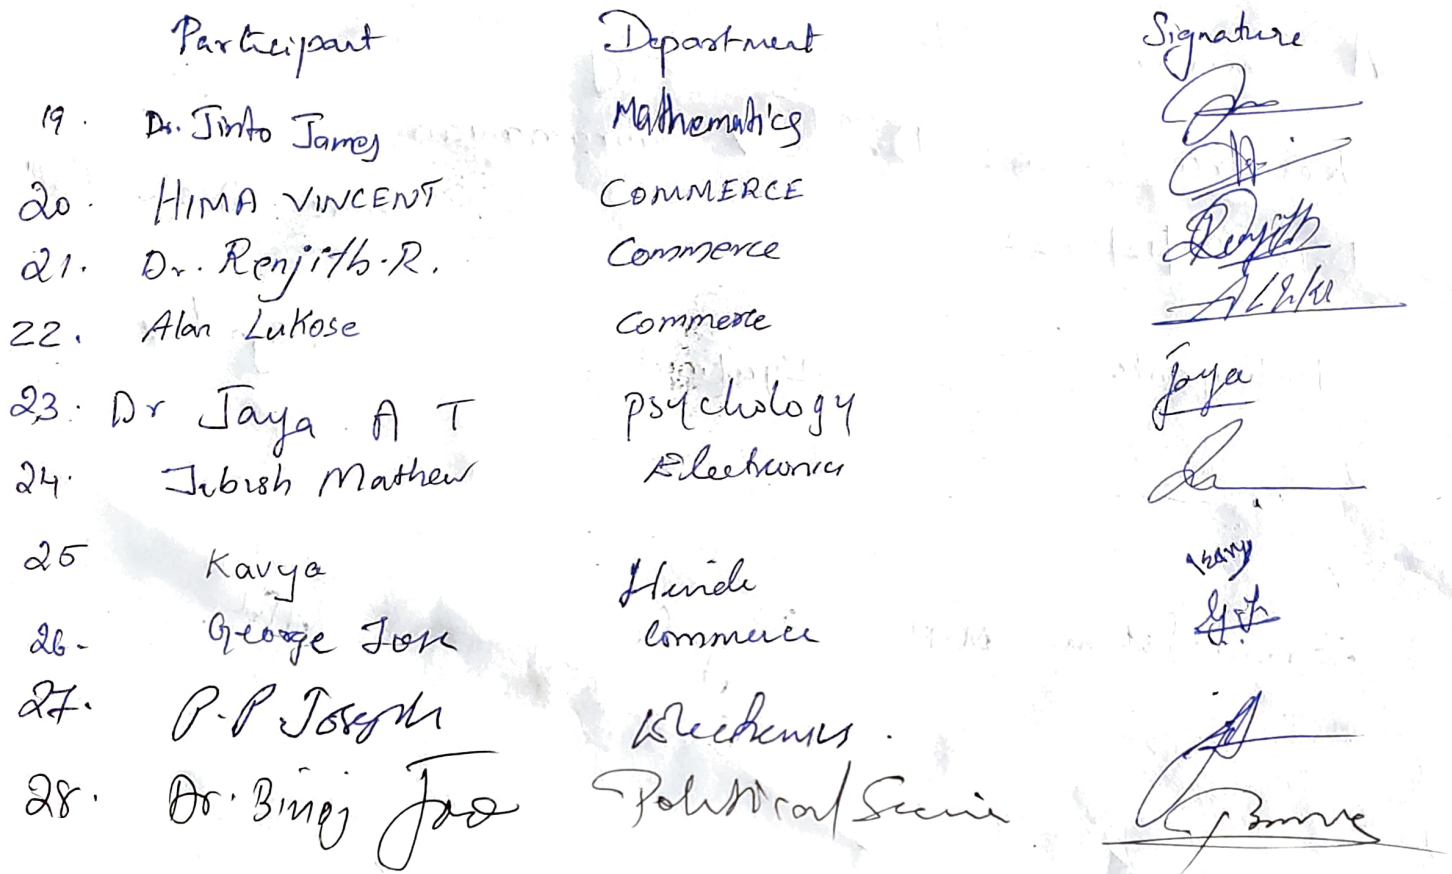 Participant Department Signature
19. Dr. Jinto James Mathematics
20. HIMA VINCENT COMMERCE
21. Dr. Renjith.R. Commerce Renjith
22. Alan Lukose Commerce
23. Dr Jaya A T Psychology Jaya
24. Jubish Mathew Electronics
25 Kavya Hindi
26- George Jose Commerce
27. P.P Joseph Electronics.
28. Dr. Binoj Jose Political Science